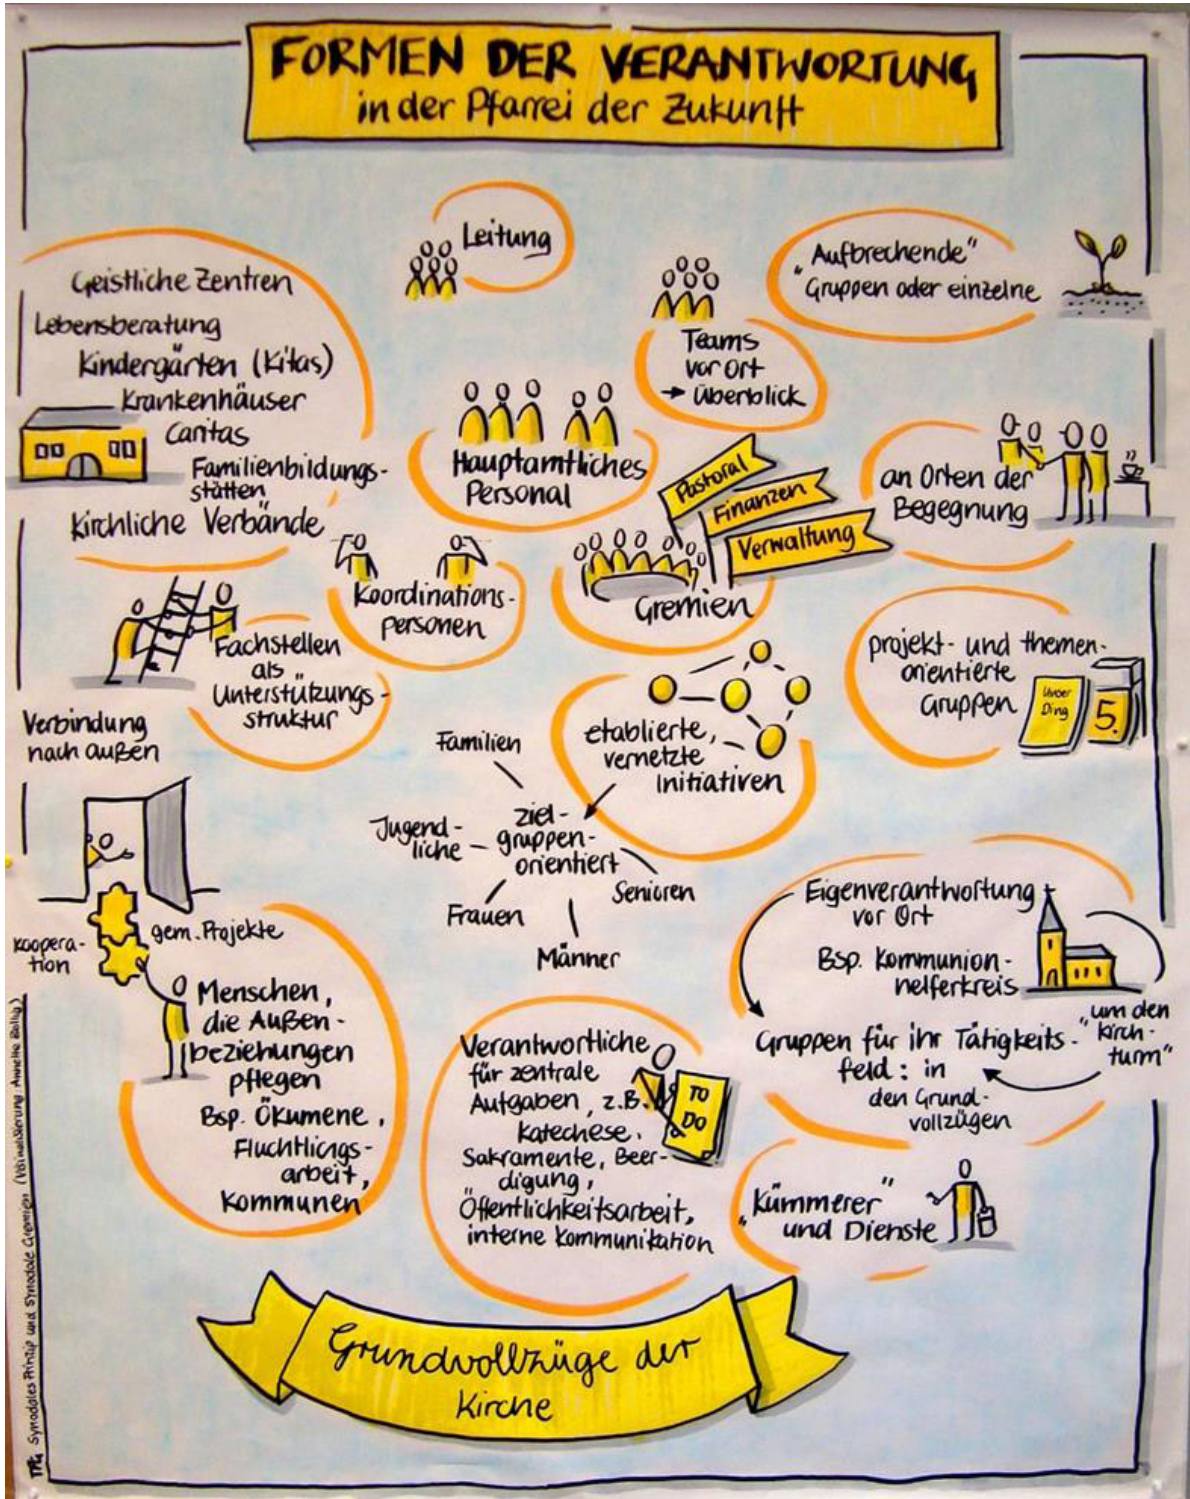 FORMEN DER VERANTWORTUNG
in der Pfarrei der Zukunft
Leitung
"Aufbrechende"
Gruppen oder einzelne
Geistliche Zentren
Lebensberatung
Kindergärten (Kitas)
Krankenhäuser
Caritas
Familienbildungs-
stätten
Kirchliche Verbände
Teams
vor Ort
→ überblick
Hauptamtliches
Personal
Pastoral
Finanzen
Verwaltung
Gremien
an Orten der
Begegnung
Koordinations-
personen
Fachstellen
als
Unterstützungs-
struktur
projekt- und themen-
orientierte
Gruppen
Unser
Ding
5.
etablierte,
vernetzte
Initiativen
ziel-
gruppen-
orientiert
Familien
Jugend-
liche
Frauen
Männer
Senioren
Verbindung
nach außen
koopera-
tion
gem. Projekte
Menschen,
die Außen-
beziehungen
pflegen
Bsp. Ökumene,
Fluchtlings-
arbeit,
Kommunen
Eigenverantwortung
vor Ort
Bsp. Kommunion-
helferkreis
"um den
Kirch-
turm"
Gruppen für ihr Tätigkeits-
feld: in
den Grund-
vollzügen
Verantwortliche
für zentrale
Aufgaben, z.B.
Katechese,
Sakramente, Beer-
digung,
Öffentlichkeitsarbeit,
interne Kommunikation
TO
DO
„Kümmerer"
und Dienste
Grundvollzüge der
Kirche
TPG Synodales Prinzip und Synodale Gremien (Visualisierung: Annette Bollig)